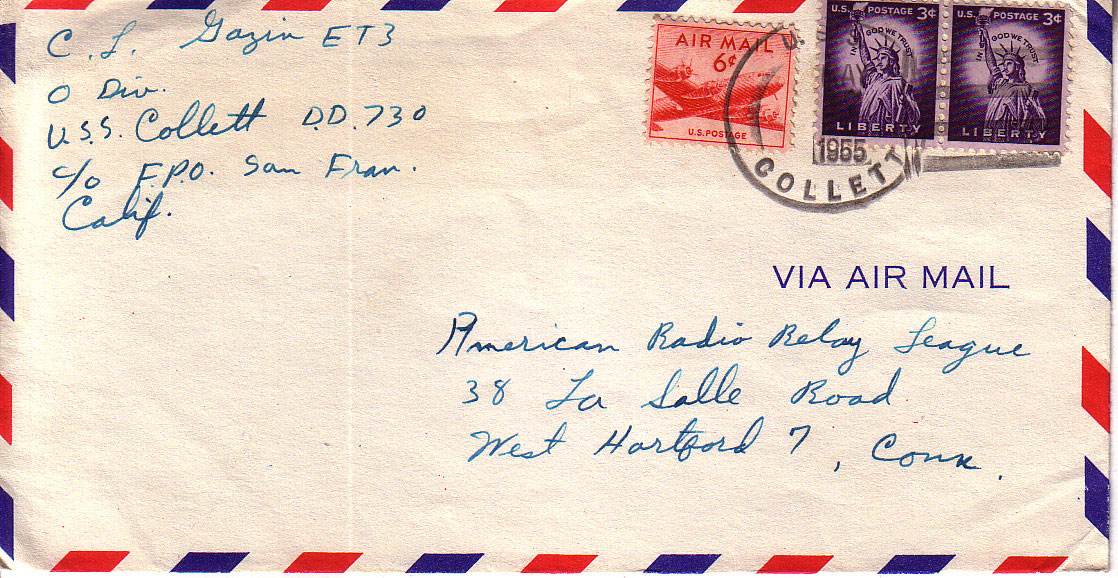 C. L. Gazin ET3
O Div.
U.S.S. Collett D.D. 730
c/o F.P.O. San Fran.
Calif.
AIR MAIL
6¢
U.S. POSTAGE
U.S. POSTAGE 3¢
IN GOD WE TRUST
LIBERTY
U.S. POSTAGE 3¢
IN GOD WE TRUST
LIBERTY
1955
COLLETT
VIA AIR MAIL
American Radio Relay League
38 La Salle Road
West Hartford 7, Conn.